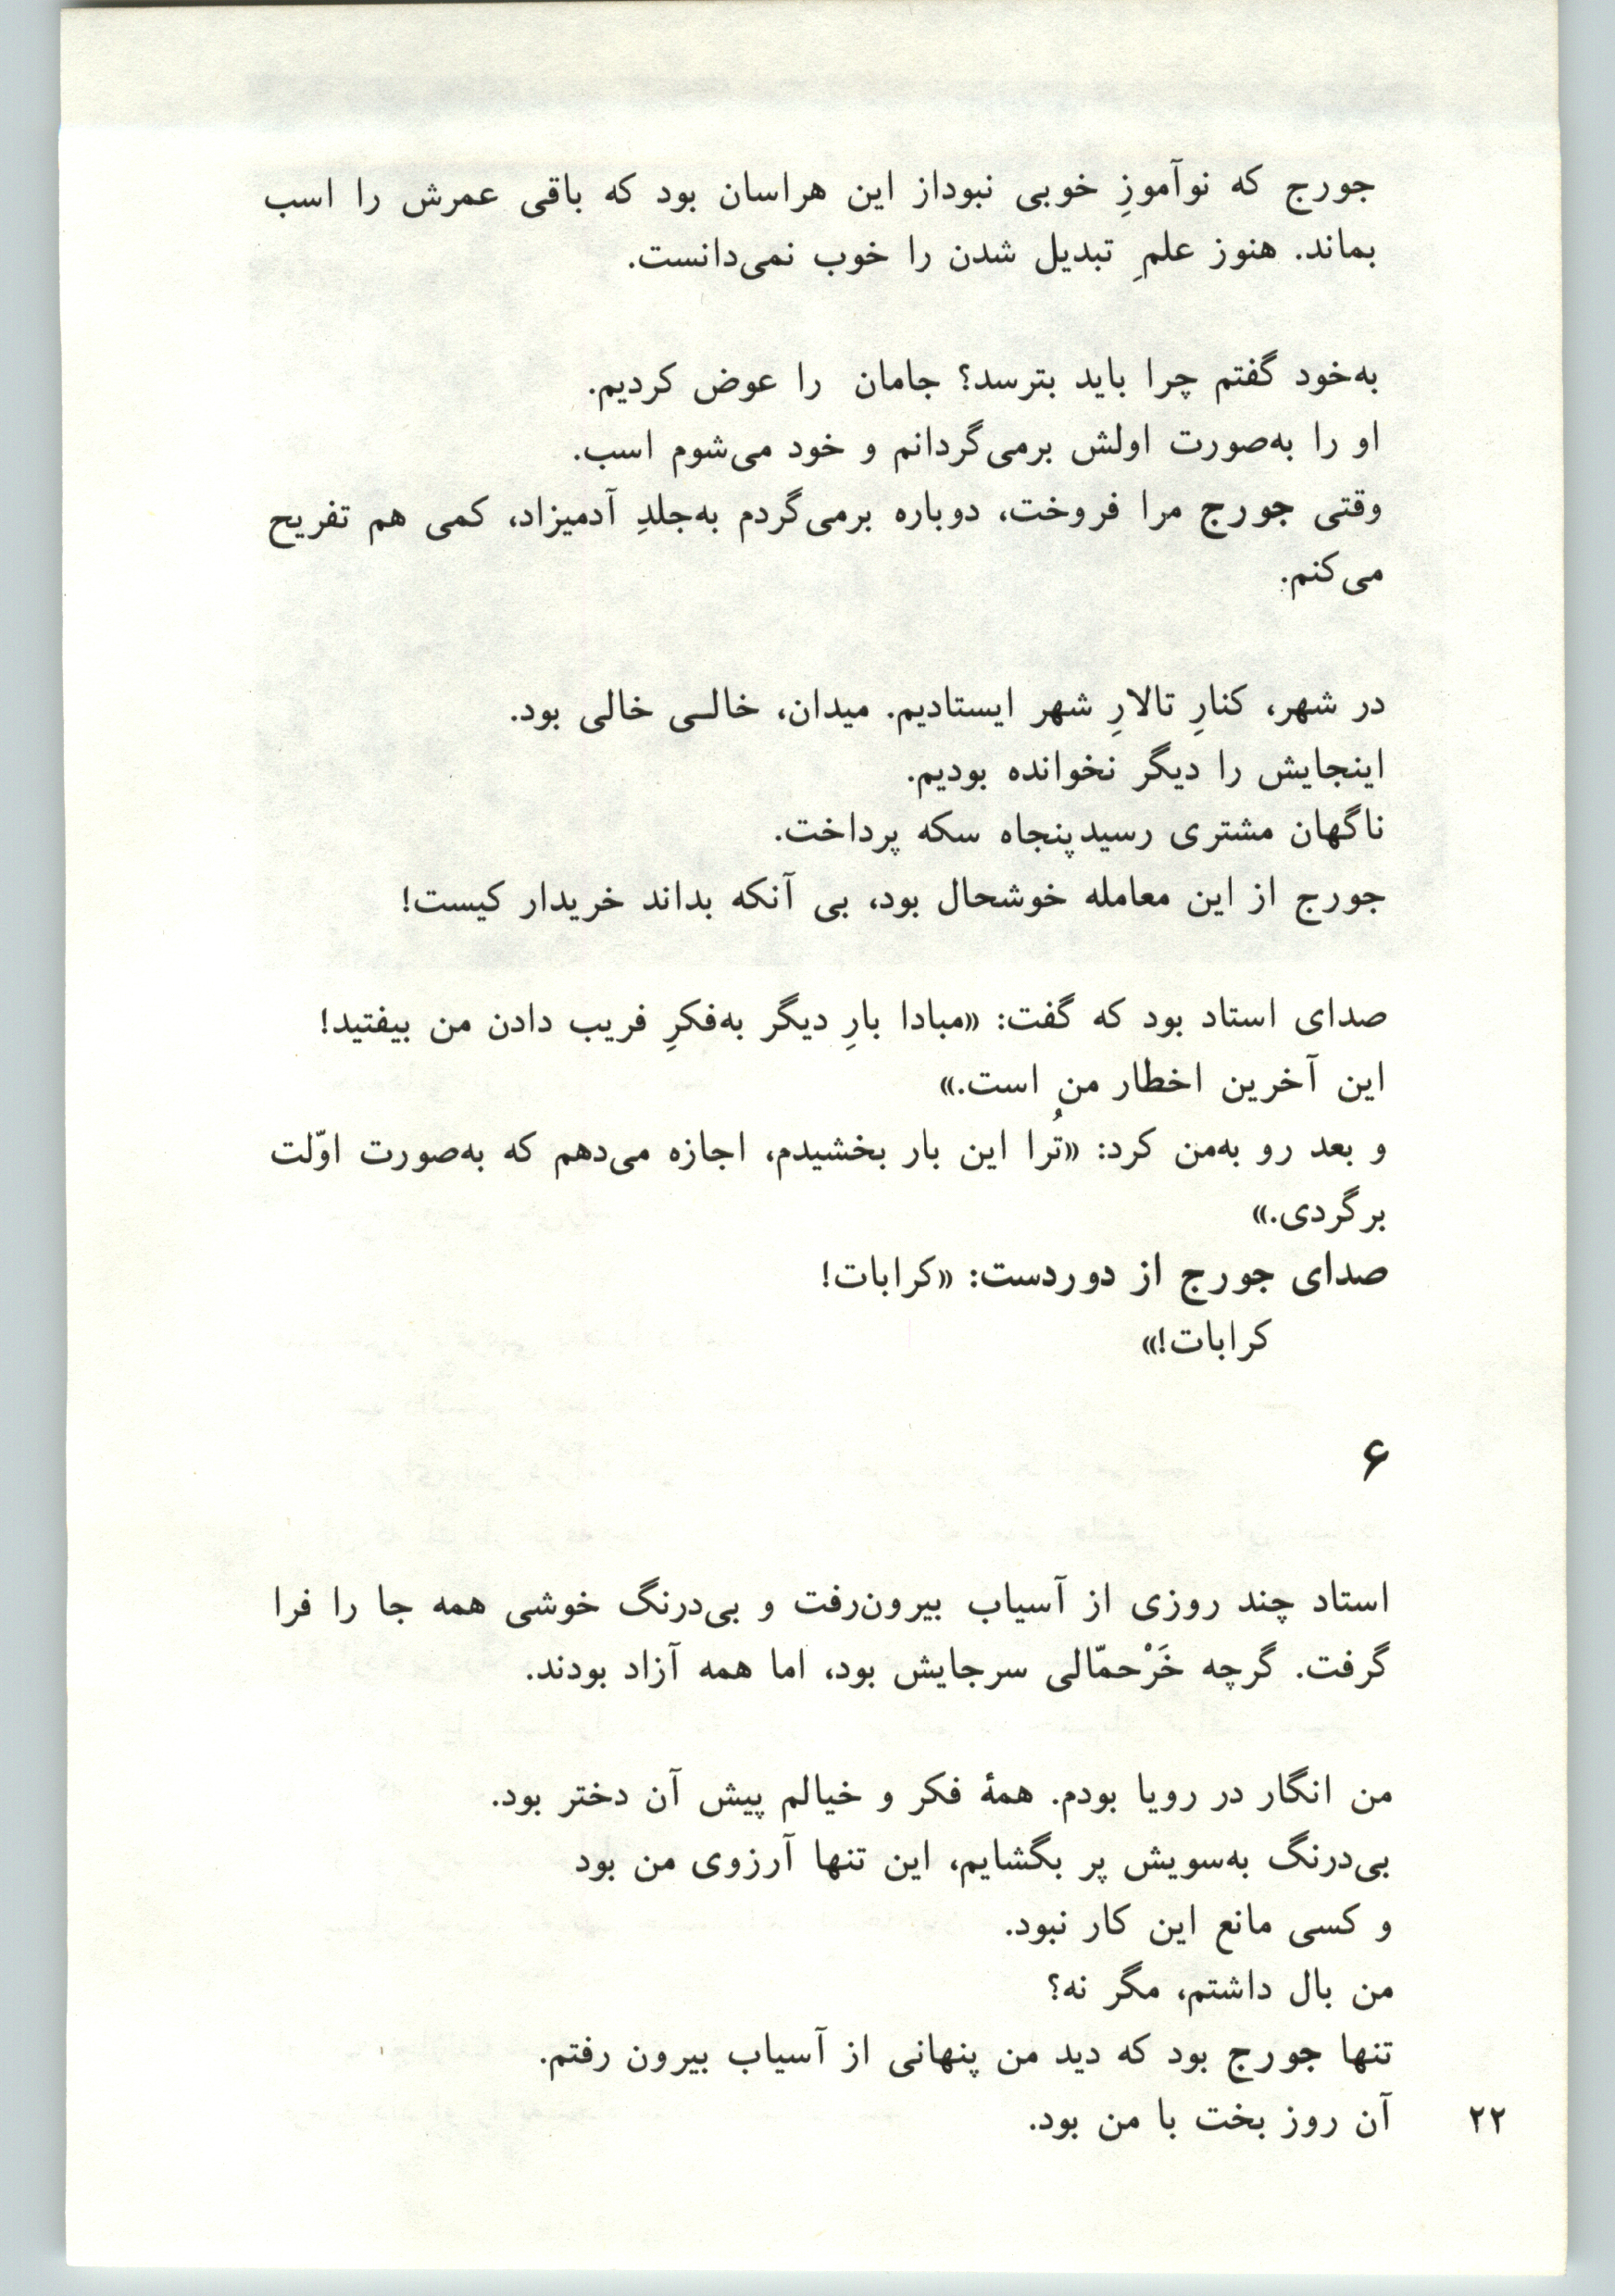 جورج که نوآموزِ خوبی نبوداز این هراسان بود که باقی عمرش را اسب
بماند. هنوز علمِ تبدیل شدن را خوب نمی‌دانست.
به‌خود گفتم چرا باید بترسد؟ جامان را عوض کردیم.
او را به‌صورت اولش برمی‌گردانم و خود می‌شوم اسب.
وقتی جورج مرا فروخت، دوباره برمی‌گردم به‌جلدِ آدمیزاد، کمی هم تفریح
می‌کنم.
در شهر، کنارِ تالارِ شهر ایستادیم. میدان، خالـی خالی بود.
اینجایش را دیگر نخوانده بودیم.
ناگهان مشتری رسیدپنجاه سکه پرداخت.
جورج از این معامله خوشحال بود، بی آنکه بداند خریدار کیست!
صدای استاد بود که گفت: «مبادا بارِ دیگر به‌فکرِ فریب دادن من بیفتید!
این آخرین اخطار من است.»
و بعد رو به‌من کرد: «تُرا این بار بخشیدم، اجازه می‌دهم که به‌صورت اوّلت
برگردی.»
صدای جورج از دوردست: «کرابات!
کرابات!»
۶
استاد چند روزی از آسیاب بیرون‌رفت و بی‌درنگ خوشی همه جا را فرا
گرفت. گرچه خَرْحمّالی سرجایش بود، اما همه آزاد بودند.
من انگار در رویا بودم. همهٔ فکر و خیالم پیش آن دختر بود.
بی‌درنگ به‌سویش پر بگشایم، این تنها آرزوی من بود
و کسی مانع این کار نبود.
من بال داشتم، مگر نه؟
تنها جورج بود که دید من پنهانی از آسیاب بیرون رفتم.
آن روز بخت با من بود.
۲۲